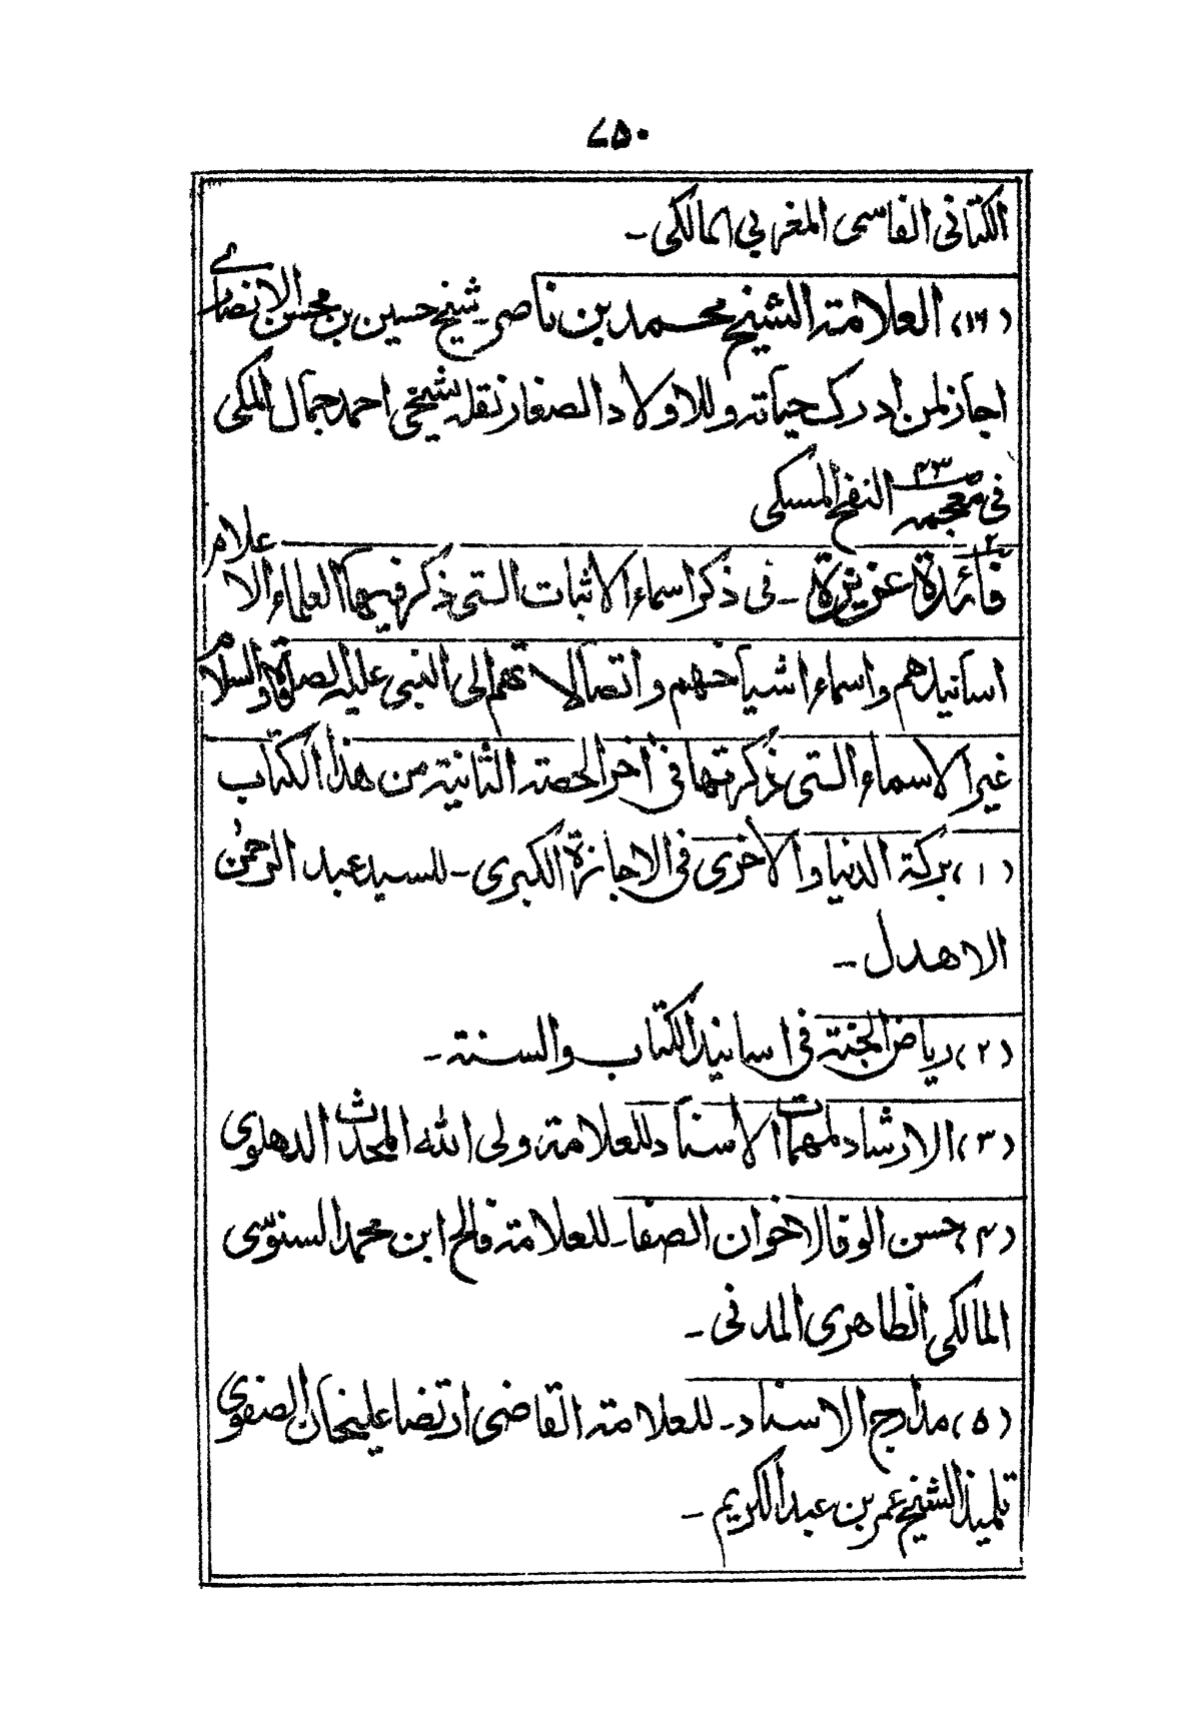 ٧٥٠
الكتاني الفاسي المغربي المالكي ـ
(١٦) العلامة الشيخ محمد بن ناصر ـ شيخ حسين بن محسن الانصاري
اجاز لمن ادرك حياته وللاولاد الصغار نقله شيخي احمد جمال المكي
في معجمه ص ٢٣ النفح المسكي
فائدة عزيزة ـ في ذكر اسماء الاثبات التي ذكر فيها العلماء الاعلام
اسانيدهم واسماء اشياخهم واتصالاتهم الى النبي عليه الصلوة والسلام
غير الاسماء التي ذكرتها في آخر الحصة الثانية من هذا الكتاب
(١) بركة الدنيا والأخرى في الاجازة الكبرى ـ للسيد عبد الرحمٰن
الاهدل ـ
(٢) رياض الجنة في اسانيد الكتاب والسنة ـ
(٣) الارشاد لمهمات الأسناد للعلامة ولى الله المحدث الدهلوي
(٤) حسن الوفا لاخوان الصفا ـ للعلامة فالح ابن محمد السنوسّي
المالكي الظاهري المدني ـ
(٥) مدارج الاسناد ـ للعلامة القاضي ارتضا عليخان الصفوي
تلميذ الشيخ عمر بن عبد الكريم ـ